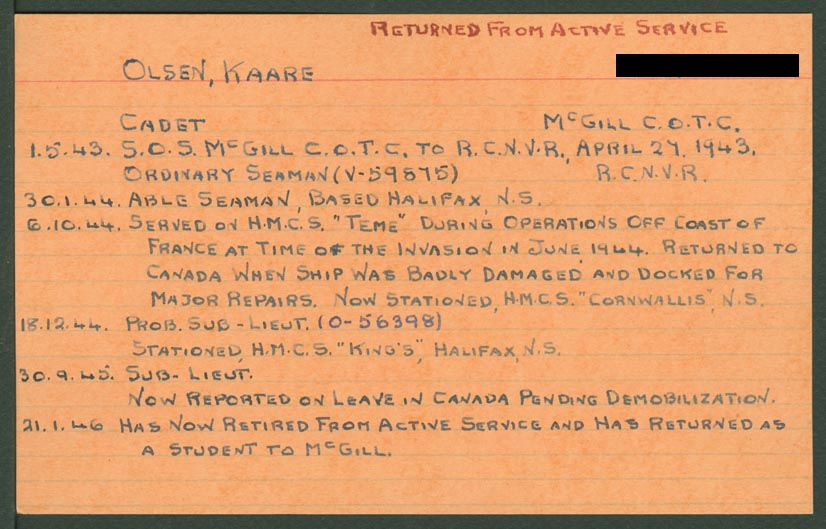 RETURNED FROM ACTIVE SERVICE
OLSEN, KAARE
CADET McGILL C.O.T.C.
1.5.43. S.O.S. McGILL C.O.T.C. TO R.C.N.V.R., APRIL 27, 1943.
ORDINARY SEAMAN (V-59875) R.C.N.V.R.
30.1.44. ABLE SEAMAN, BASED HALIFAX, N.S.
6.10.44. SERVED ON H.M.C.S. "TEME" DURING OPERATIONS OFF COAST OF
FRANCE AT TIME OF THE INVASION IN JUNE 1944. RETURNED TO
CANADA WHEN SHIP WAS BADLY DAMAGED AND DOCKED FOR
MAJOR REPAIRS. NOW STATIONED, H.M.C.S. "CORNWALLIS", N.S.
18.12.44. PROB. SUB-LIEUT. (O-56398)
STATIONED, H.M.C.S. "KING'S", HALIFAX, N.S.
30.9.45. SUB-LIEUT.
NOW REPORTED ON LEAVE IN CANADA PENDING DEMOBILIZATION.
21.1.46 HAS NOW RETIRED FROM ACTIVE SERVICE AND HAS RETURNED AS
A STUDENT TO McGILL.